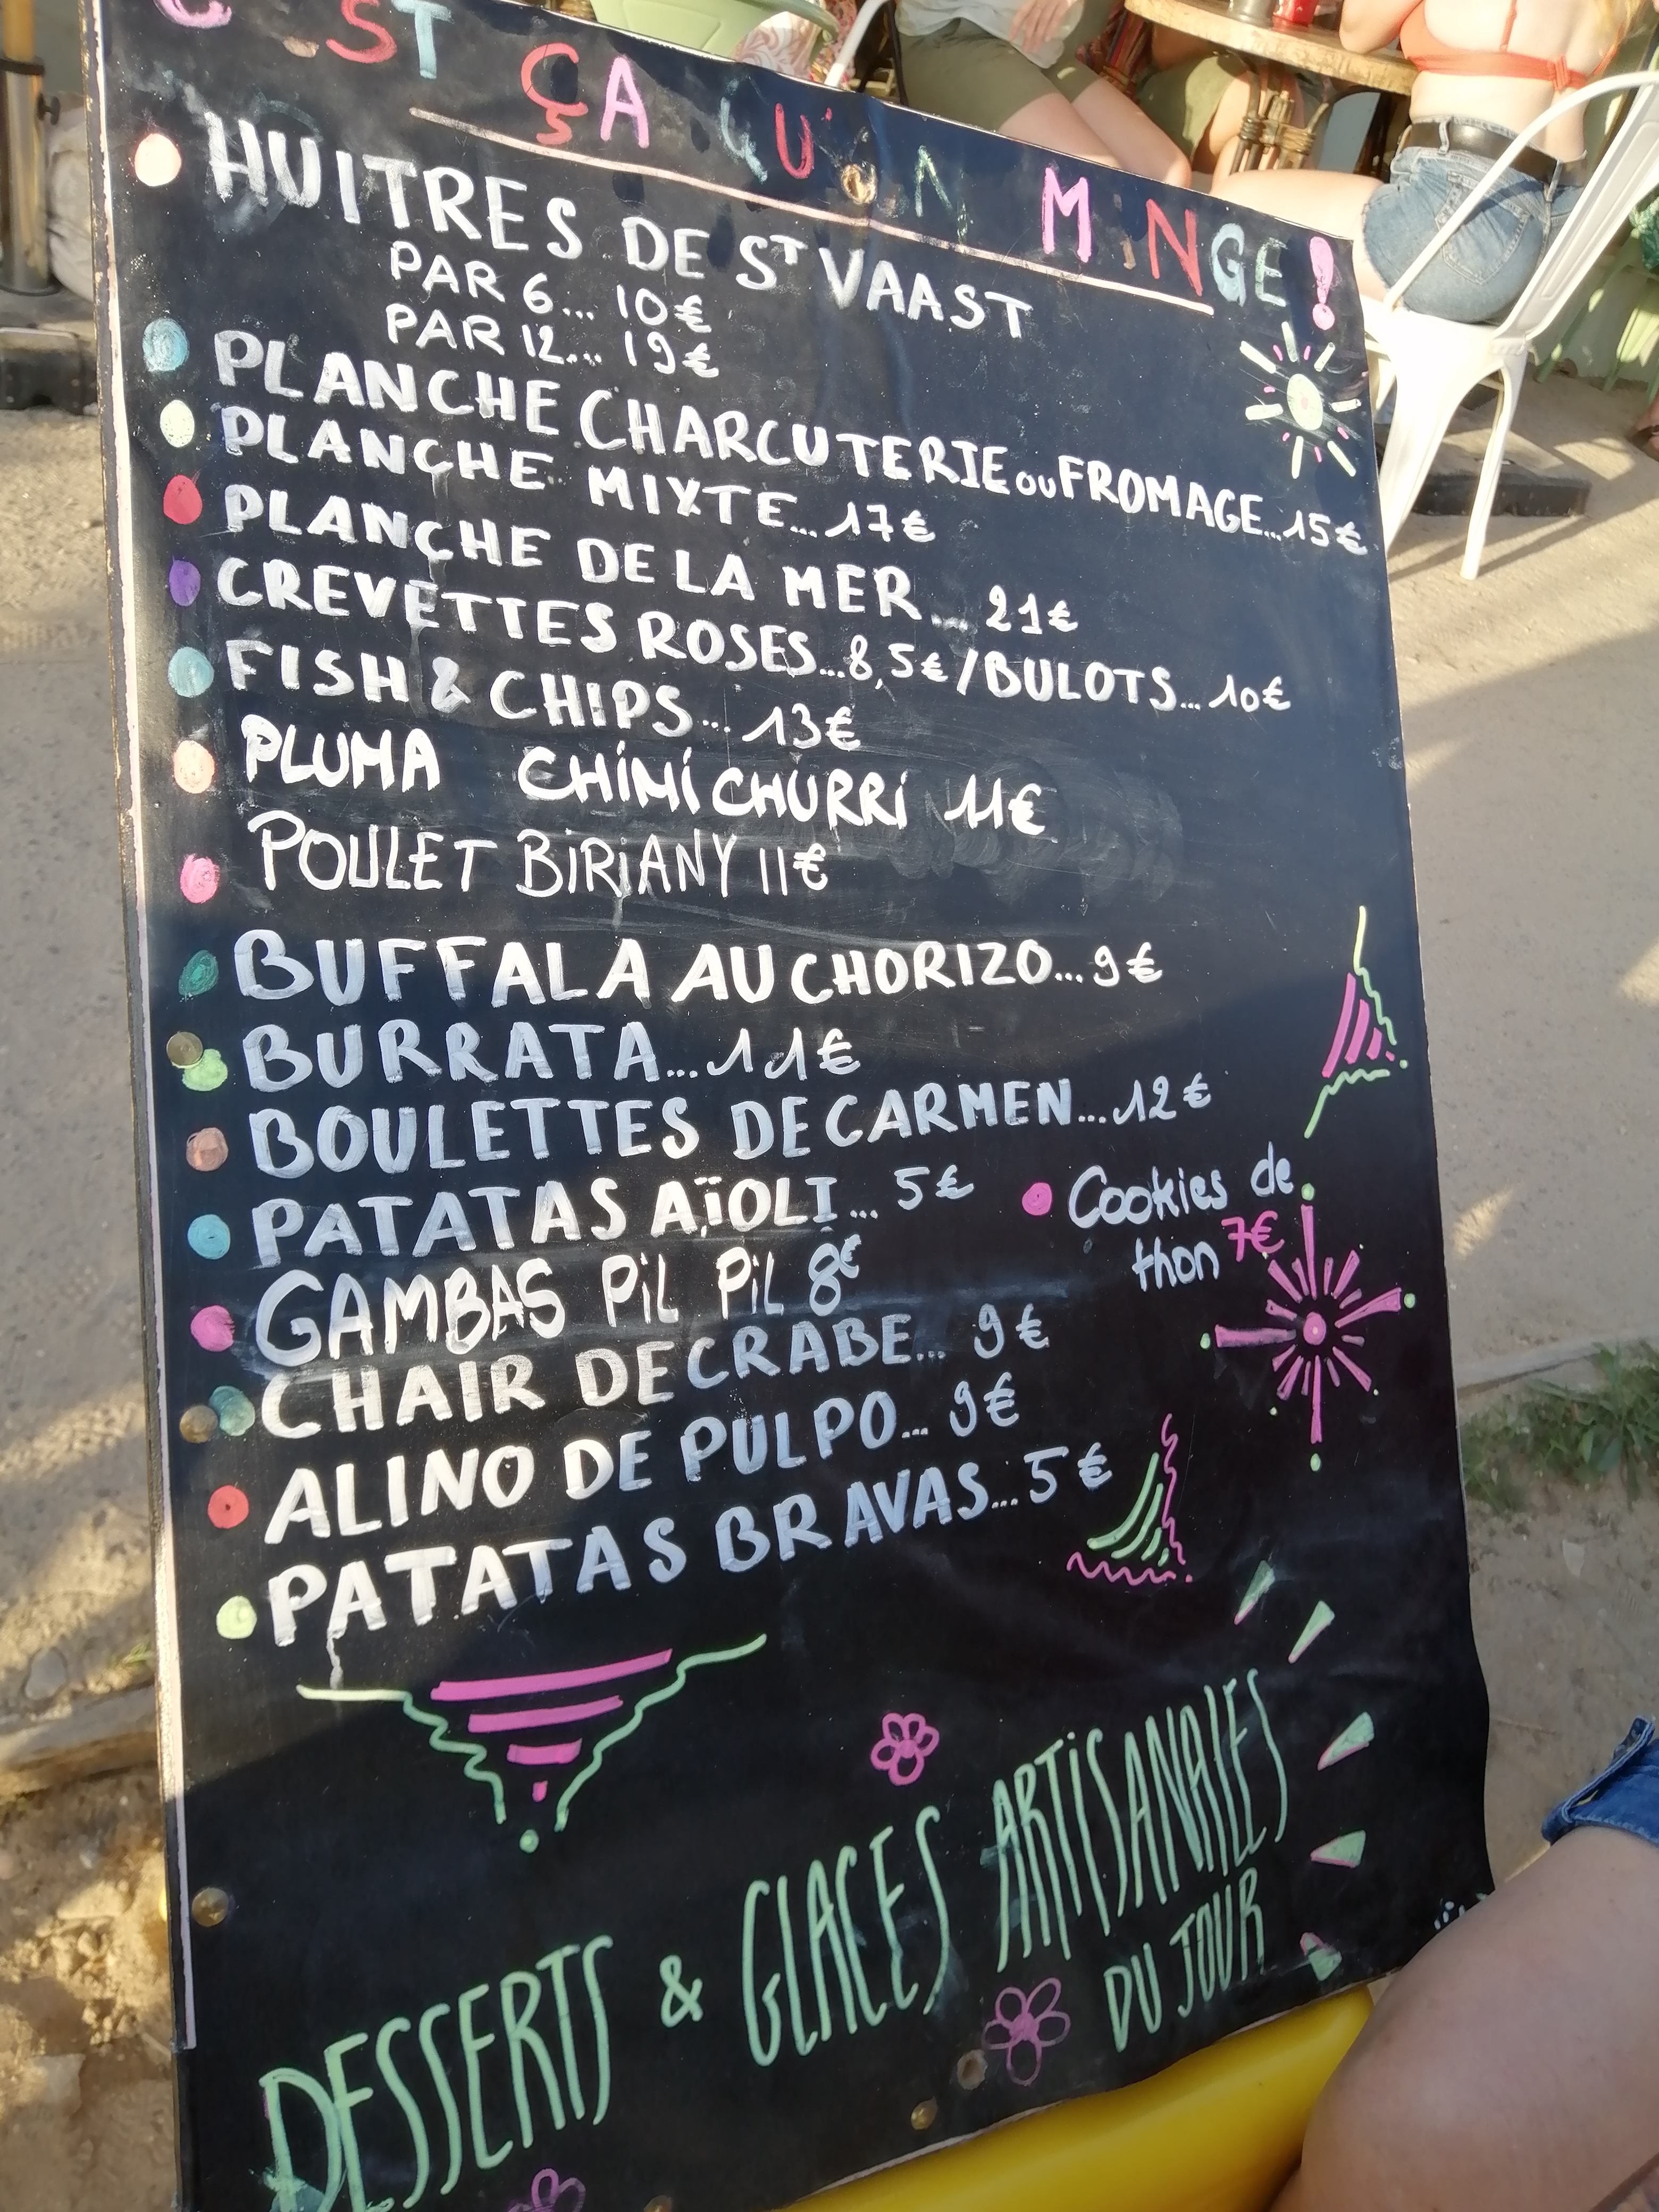 C'EST ÇA QU'ON MANGE!
HUITRES DE ST VAAST
PAR 6... 10€
PAR 12... 19€
PLANCHE CHARCUTERIE OU FROMAGE...15€
PLANCHE MIXTE...17€
PLANCHE DE LA MER... 21€
CREVETTES ROSES...8,5€/BULOTS...10€
FISH & CHIPS... 13€
PLUMA CHIMICHURRI 11€
POULET BIRIANY 11€
BUFFALA AU CHORIZO...9€
BURRATA...11€
BOULETTES DE CARMEN...12€
PATATAS AÏOLI... 5€
Cookies de
thon 7€
GAMBAS PIL PIL 8€
CHAIR DE CRABE... 9€
ALINO DE PULPO... 9€
PATATAS BRAVAS...5€
DESSERTS & GLACES ARTISANALES
DU JOUR